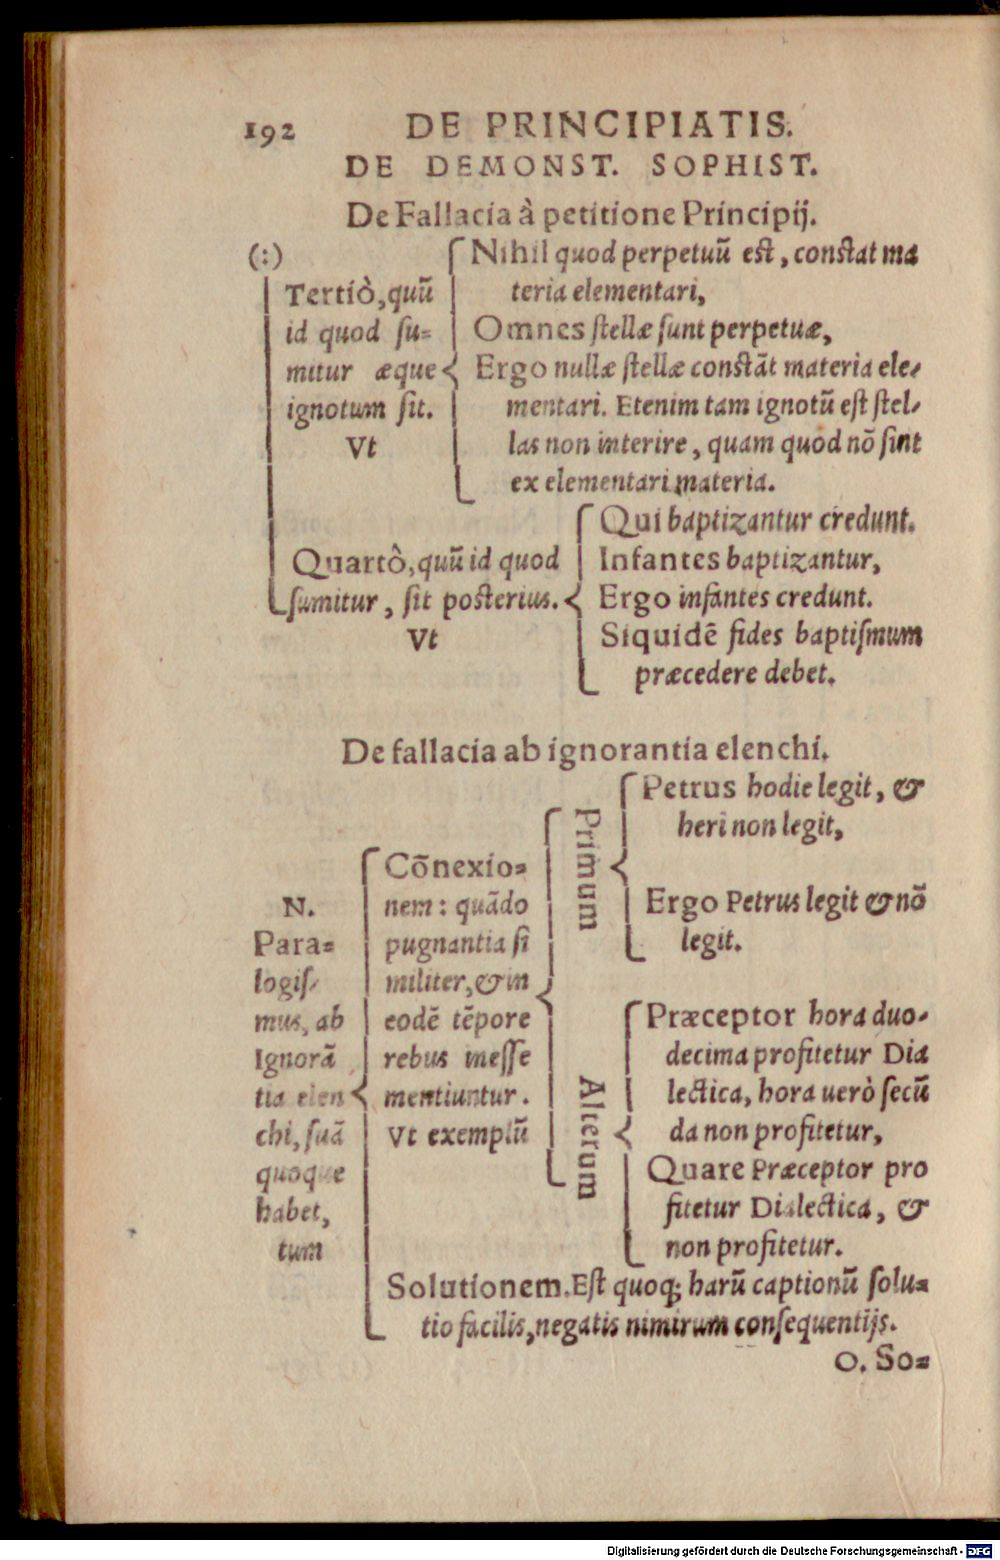 192 DE PRINCIPIATIS.
DE DEMONST. SOPHIST.
De Fallacia à petitione Principij.
(:)
Tertiò, quũ
id quod ſu=
mitur æque
ignotum ſit.
Vt
Nihil quod perpetuũ est, constat ma
teria elementari,
Omnes ſtellæ ſunt perpetuæ,
Ergo nullæ ſtellæ constāt materia ele,
mentari. Etenim tam ignotũ eſt ſtel,
las non interire, quam quòd nō ſint
ex elementari materia.
Quartò, quũ id quod
ſumitur, ſit posterius.
Vt
Qui baptizantur credunt.
Infantes baptizantur,
Ergo infantes credunt.
Siquidē fides baptiſmum
præcedere debet.
De fallacia ab ignorantia elenchi.
N.
Para=
logiſ,
mus, ab
Ignorā
tia elen
chi, ſuā
quoque
habet,
tum
Cōnexio=
nem: quādo
pugnantia ſi
militer, & in
eodē tēpore
rebus ineſſe
mentiuntur.
Vt exemplũ
Primum
Petrus hodie legit, &
heri non legit,
Ergo Petrus legit & nō
legit.
Alterum
Præceptor hora duo,
decima profitetur Dia
lectica, hora uerò ſecũ
da non profitetur,
Quare Præceptor pro
fitetur Dialectica, &
non profitetur.
Solutionem. Eſt quoq; harũ captionũ ſolu=
tio facilis, negatis nimirum conſequentijs.
O. So=
Digitalisierung gefördert durch die Deutsche Forschungsgemeinschaft - DFG